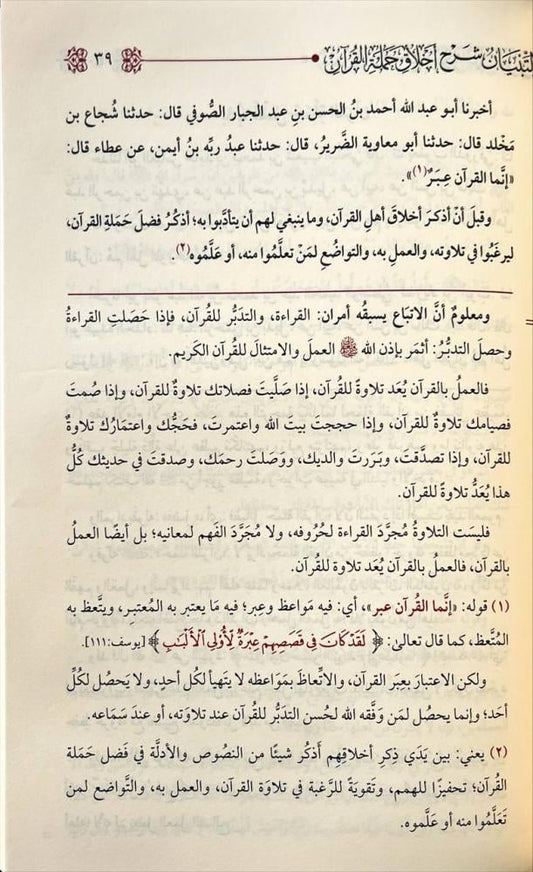 التبيان شرح أخلاق حملة القرآن ٣٩
أخبرنا أبو عبد الله أحمد بنُ الحسن بنِ عبد الجبار الصُّوفي قال: حدثنا شُجاع بن
مَخْلد قال: حدثنا أبو معاوية الضَّريرُ، قال: حدثنا عبدُ ربِّه بنُ أيمن، عن عطاء قال:
«إنَّما القرآن عِبَرٌ(١)».
وقبلَ أنْ أذكرَ أخلاقَ أهلِ القرآن، وما ينبغي لهم أن يتأدَّبوا به؛ أذكرُ فضلَ حَمَلةِ القرآن،
ليرغَبُوا في تلاوته، والعملِ به، والتواضُعِ لمَنْ تعلَّمُوا منه، أو عَلَّمُوه(٢).
ومعلومٌ أنَّ الاتباع يسبقُه أمران: القراءة، والتدَبُّر للقرآن، فإذا حَصَلتِ القراءةُ
وحصلَ التدبُّرُ: أثمَر بإذن الله ﷻ العملَ والامتثالَ للقُرآن الكَريم.
فالعملُ بالقرآن يُعَد تلاوةً للقُرآن، إذا صَلَّيتَ فصلاتك تلاوةٌ للقرآن، وإذا صُمتَ
فصيامك تلاوةٌ للقرآن، وإذا حججتَ بيتَ الله واعتمرتَ، فحَجُّك واعتمَارُك تلاوةٌ
للقرآن، وإذا تصدَّقتَ، وبَررتَ والديك، ووَصَلتَ رحمَك، وصدقتَ في حديثك كُلُّ
هذا يُعَدُّ تلاوةً للقرآن.
فليسَت التلاوةُ مُجرَّدَ القراءة لحُرُوفه، ولا مُجَرَّدَ الفَهم لمعانيه؛ بل أيضًا العملُ
بالقرآن، فالعملُ بالقرآن يُعَد تلاوة للقُرآن.
(١) قوله: «إنَّما القُرآن عبر»، أي: فيه مَواعظ وعِبر؛ فيه مَا يعتبر به المُعتبِر، ويتَّعظ به
المُتَّعظ، كما قال تعالىٰ: ﴿لَقَدْ كَانَ فِي قَصَصِهِمْ عِبْرَةٌ لِّأُولِي الْأَلْبَابِ﴾ [يوسف:١١١].
ولكن الاعتبارَ بعِبَر القرآن، والاتِّعاظَ بمَوَاعظه لا يَتهيأ لكُل أحدٍ، ولا يَحصُل لكُلِّ
أحَد؛ وإنما يحصُل لمَن وَفَّقه الله لحُسن التدبُّر للقُرآن عند تلاوَته، أو عندَ سَمَاعه.
(٢) يعني: بين يَدَي ذِكرِ أخلاقِهم أَذكُر شيئًا من النصُوص والأدلَّة في فَضل حَمَلة
القُرآن؛ تحفيزًا للهِمم، وتَقويَةً للرَّغبة في تلاوَة القرآن، والعمل به، والتَّواضع لمن
تَعَلَّمُوا منه أو عَلَّموه.